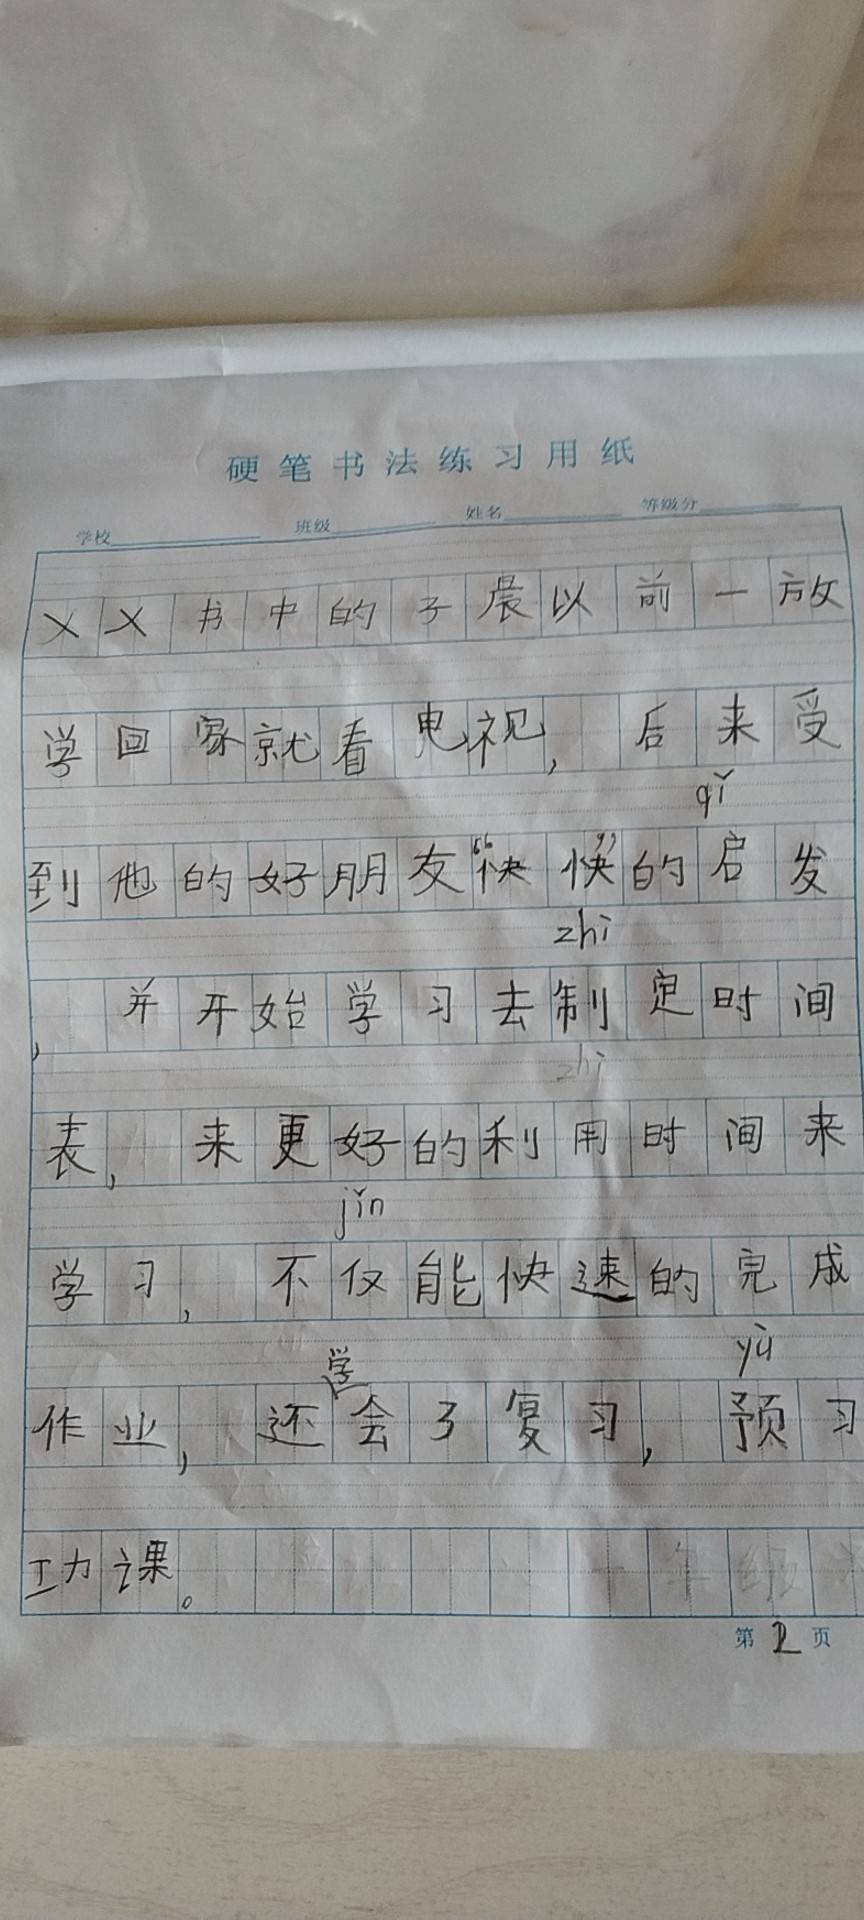 硬笔书法练习用纸
学校 班级 姓名 等级分
乂乂书中的子晨以前一放
学回家就看电视，后来受
qǐ
到他的好朋友“快快”的启发
zhì
，并开始学习去制定时间
zhì
表，来更好的利用时间来
jǐn
学习，不仅能快速的完成
学 yù
作业，还会了复习，预习
功课。
第2页